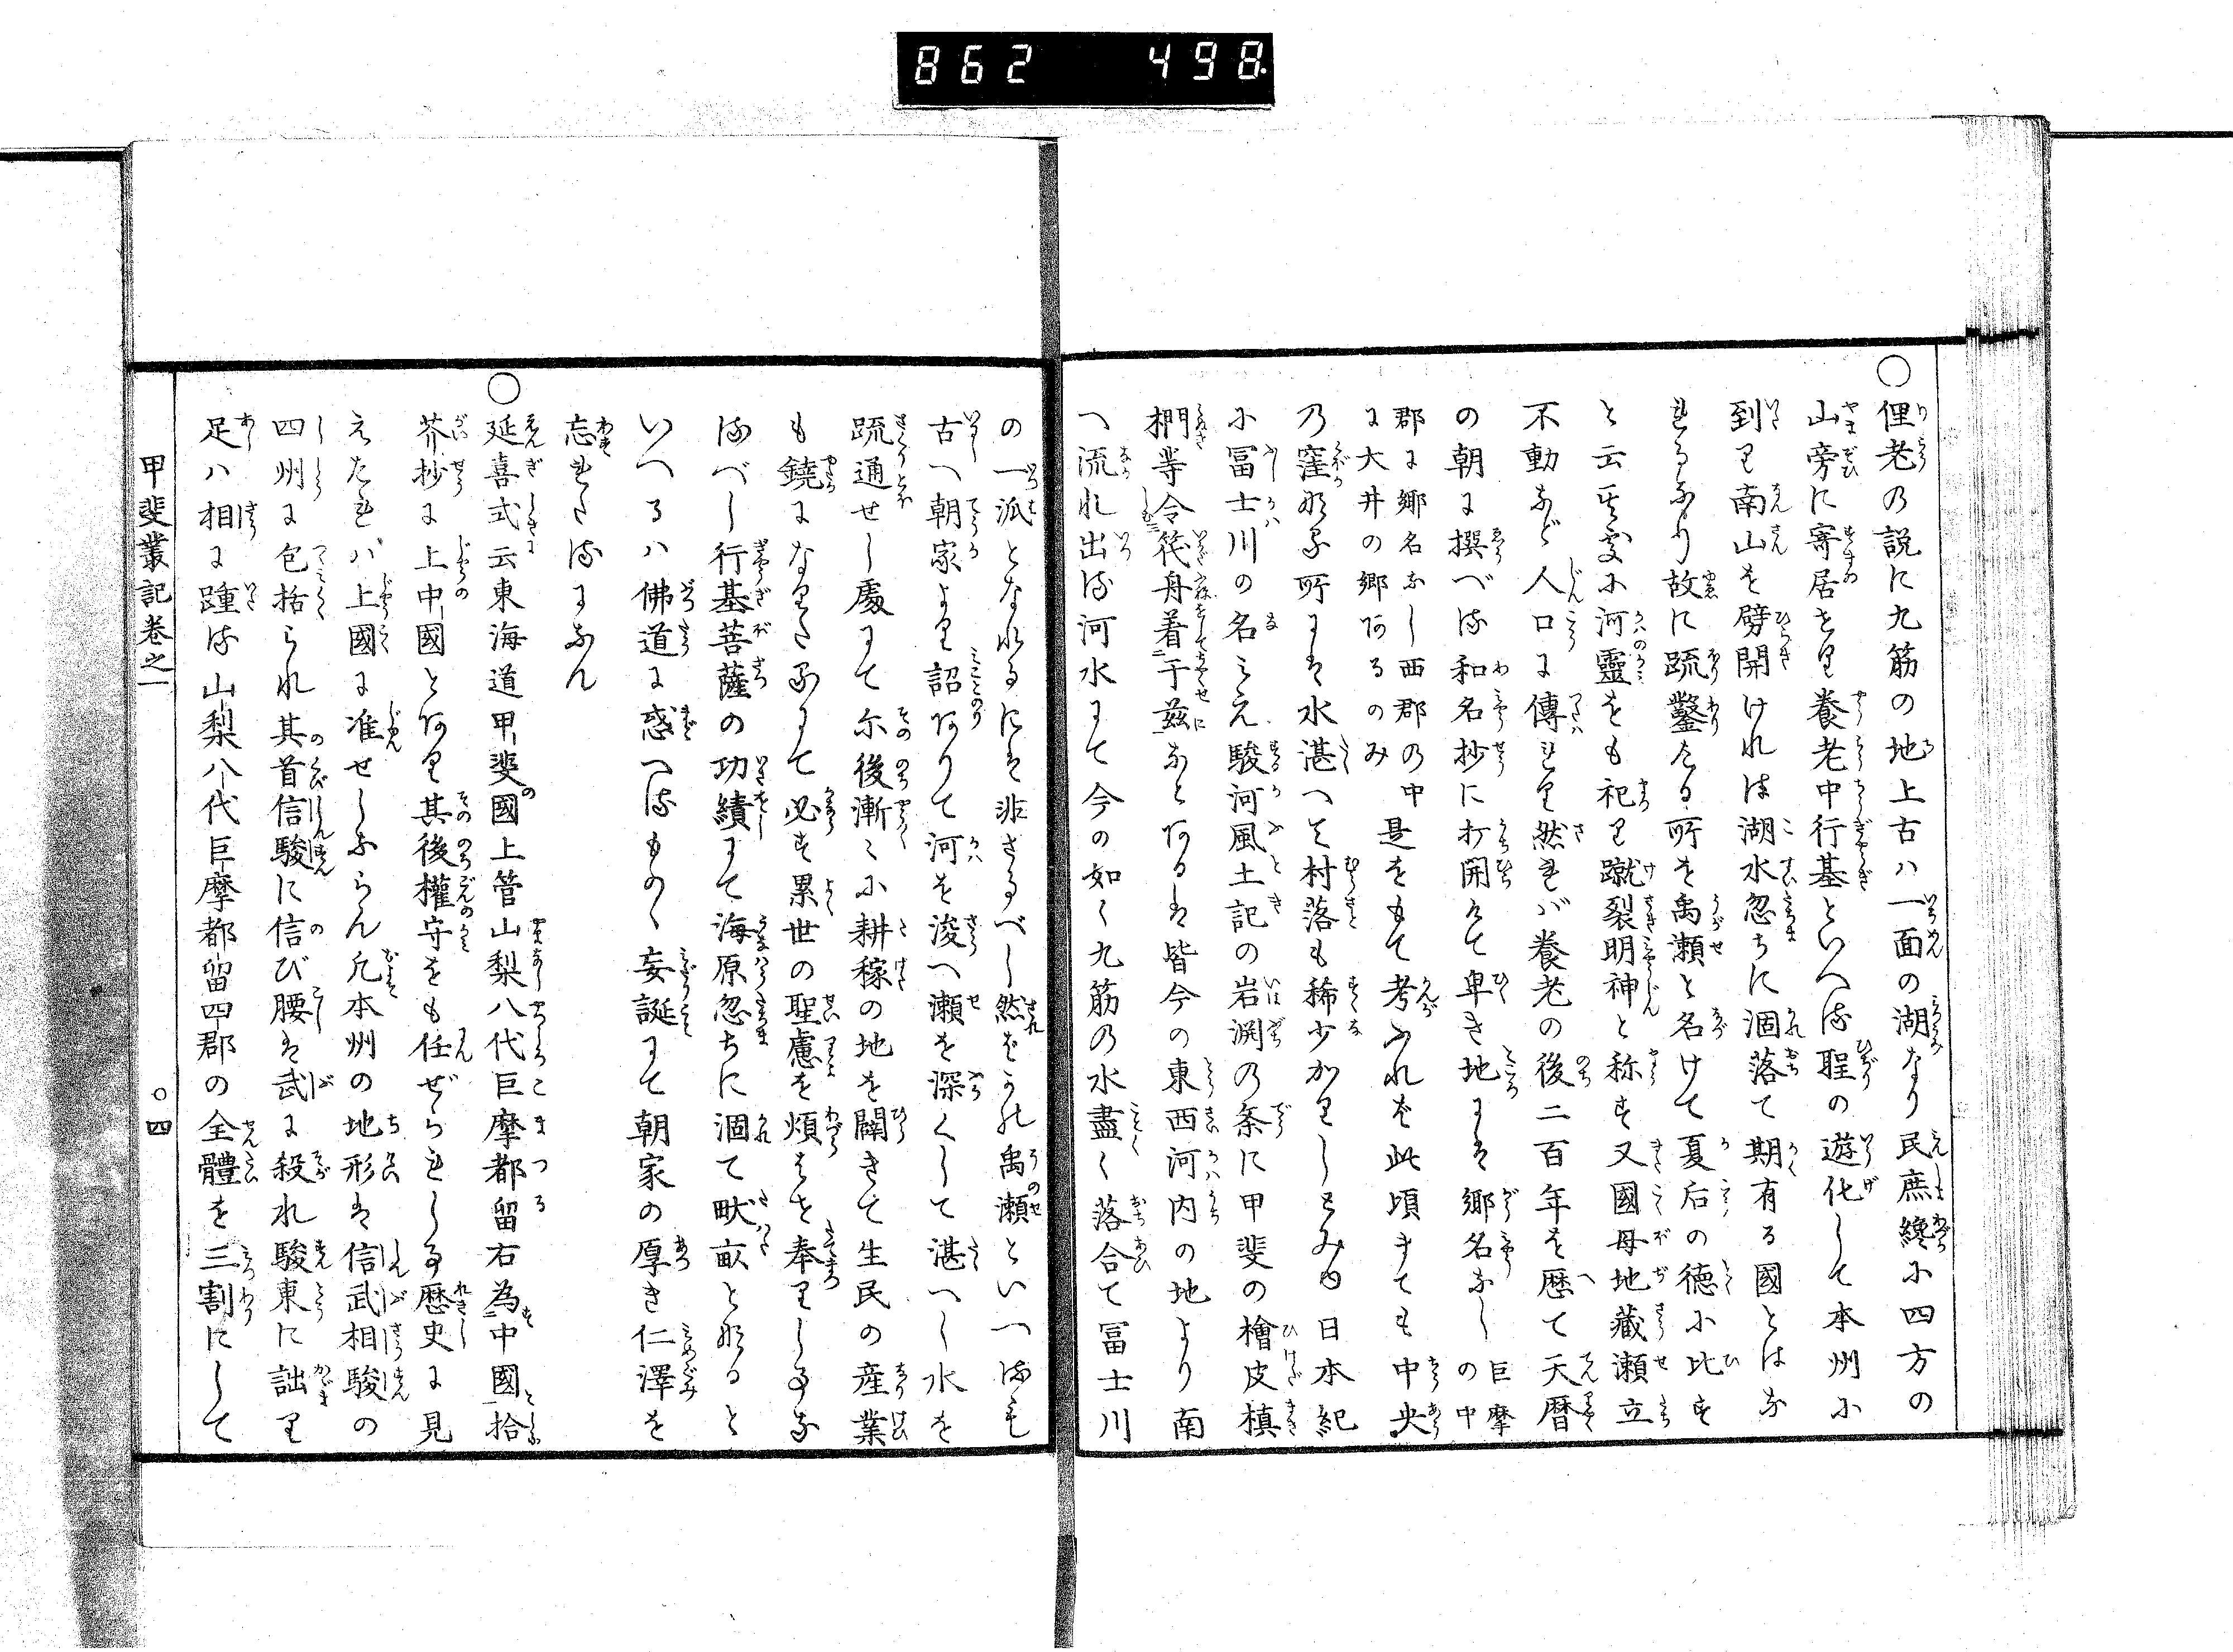 862 498.
○俚老の説に九筋の地上古ハ一面の湖なり民庶纔に四方の
山旁に寄居せり養老中行基といへる聖の遊化して本州に
到り南山を劈開けれは湖水忽ちに涸落て期有る國とはな
れるなり故に疏鑿たる所を禹瀬と名けて夏后の徳に比す
と云其處に河靈をも祀り蹴裂明神と称す又國母地藏瀬立
不動など人口に傳へり然れバ養老の後二百年を歴て天暦
の朝に撰べる和名抄に打開けて卑き地には郷名なし巨摩の中
郡に郷名なし西郡の中に大井の郷あるのみ是をもて考ふれば此頃までも中央
の窪なる所には水湛へて村落も稀少かりしとみゆ日本紀
に冨士川の名みえ駿河風土記の岩渕の条に甲斐の檜皮槙
椚等令筏舟着于茲なとあるは皆今の東西河内の地より南
へ流れ出る河水にて今の如く九筋の水盡く落合て冨士川
の一派となれるには非さるべし然はあれ禹瀬といへるも
古へ朝家より詔ありて河を浚へ瀬を深くして湛へし水を
疏通せし處にて尓後漸々に耕稼の地を闢きて生民の産業
も鐃になりたるにて必す累世の聖慮を煩はせ奉りし事な
るべし行基菩薩の功績にて海原忽ちに涸て畎畝となると
いへるハ佛道に惑へるものゝ妄誕にて朝家の厚き仁澤を
忘れたるになん
○延喜式云東海道甲斐國上管山梨八代巨摩都留右為中國拾
芥抄に上中國とあり其後權守をも任ぜられし事歴史に見
えたれバ上國に准せしならん凡本州の地形は信武相駿の
四州に包括られ其首信駿に信び腰は武に殺れ駿東に詘り
足ハ相に踵る山梨八代巨摩都留四郡の全體を三割にして
甲斐叢記巻之一 ○四